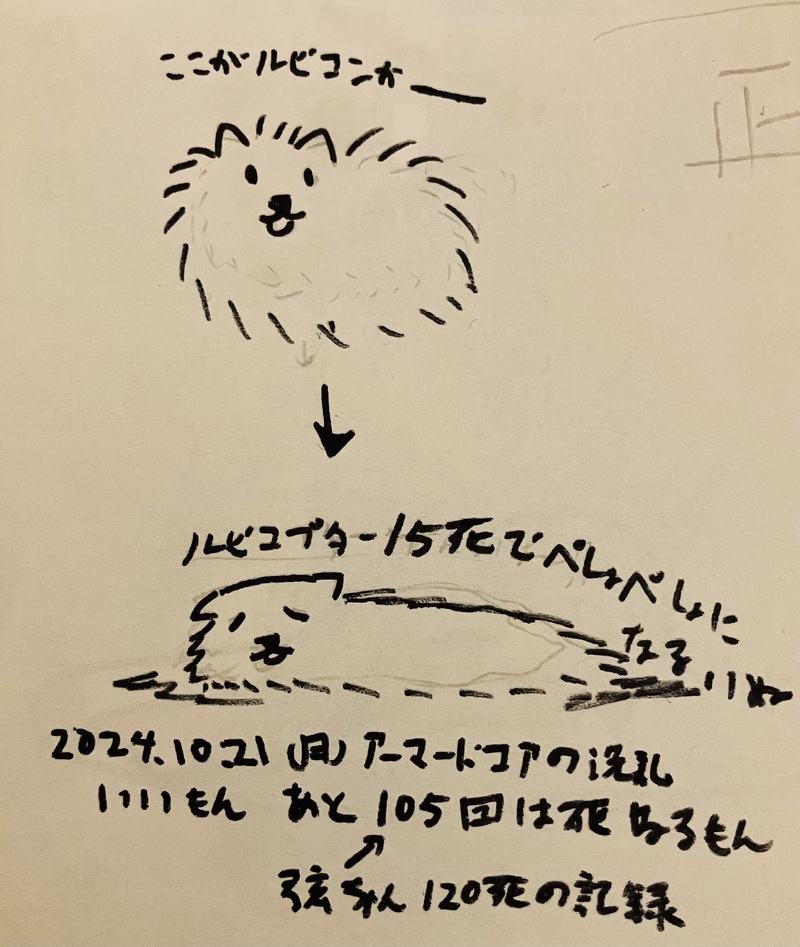 ここがルビコンか
ルビコプター15死でべしょべしょに
なる
いぬ
2024.10.21(月)アーマードコアの洗礼
いいもん あと105回は死ねるもん
弦ちゃん120死の記録
正